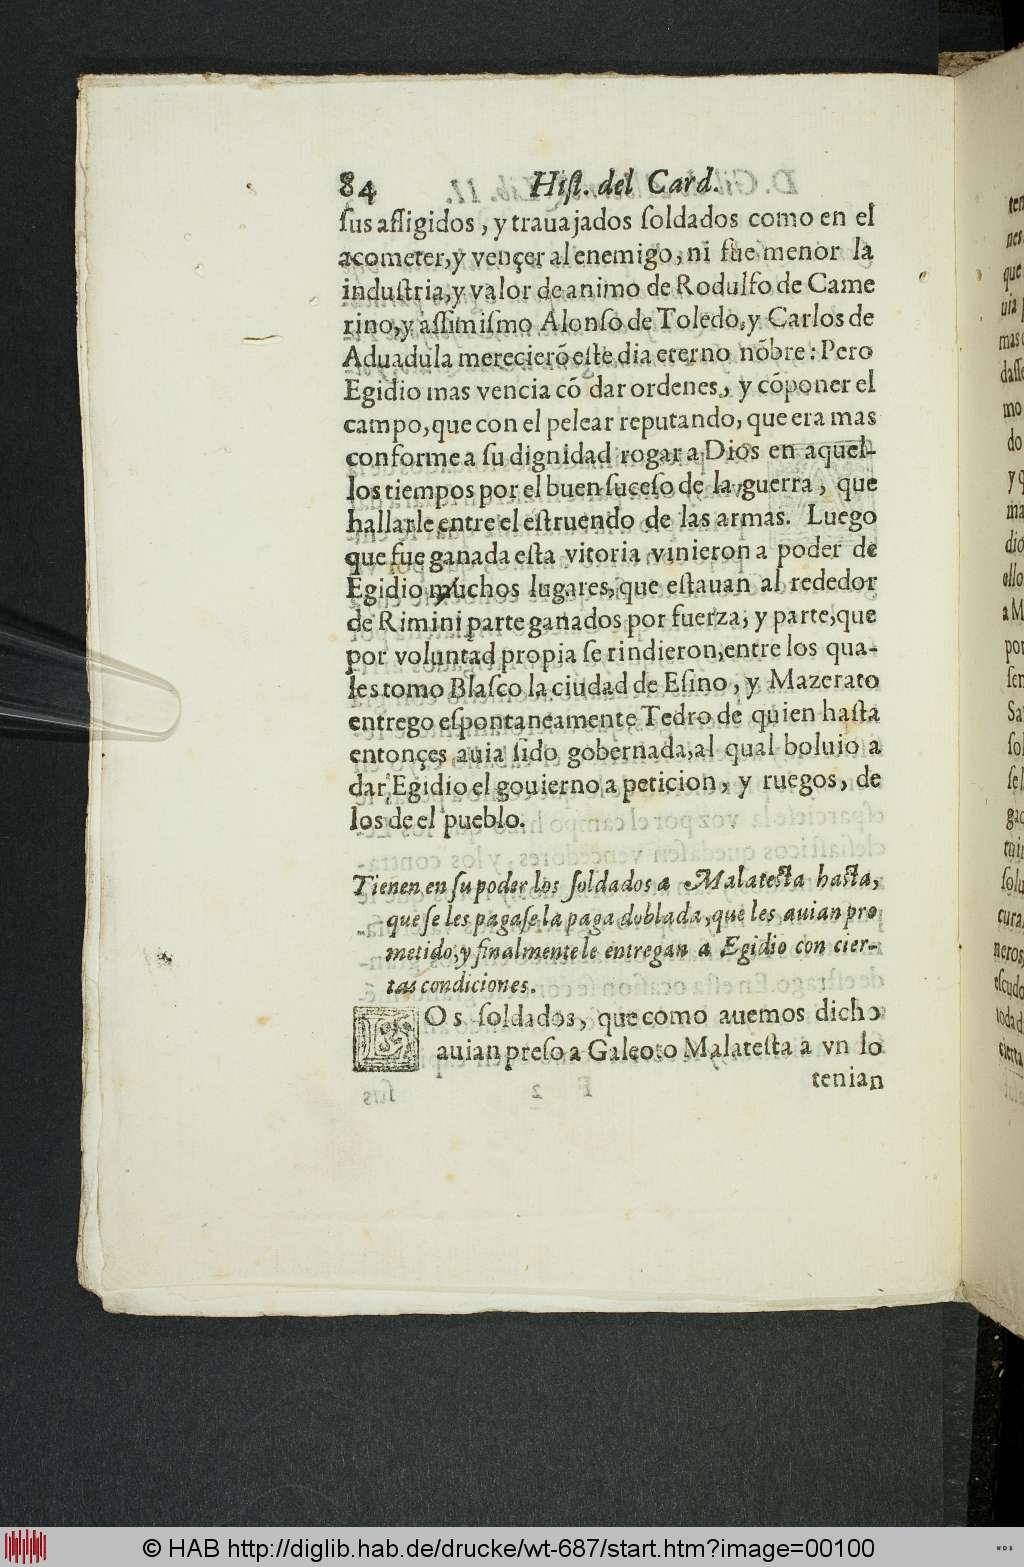 84 Hiſt. del Card.
ſus afligidos, y trauajados ſoldados como en el
acometer, y vençer al enemigo, ni fue menor la
induſtria, y valor de animo de Rodulfo de Came
rino, y aſſimiſmo Alonſo de Toledo, y Carlos de
Aduadula merecierõ eſte dia eterno nõbre: Pero
Egidio mas vencia cõ dar ordenes, y cõponer el
campo, que con el pelear reputando, que era mas
conforme a ſu dignidad rogar a Dios en aquel-
los tiempos por el buen ſuceſo de la guerra, que
hallarſe entre el eſtruendo de las armas. Luego
que fue ganada eſta vitoria vinieron a poder de
Egidio muchos lugares, que eſtauan al rededor
de Rimini parte ganados por fuerza, y parte, que
por voluntad propia ſe rindieron, entre los qua-
les tomo Blaſco la ciudad de Eſino, y Mazerato
entrego eſpontaneamente Tedro de quien haſta
entonçes auia ſido gobernada, al qual boluio a
dar Egidio el gouierno a peticion, y ruegos, de
los de el pueblo.
Tienen en ſu poder los ſoldados a Malateſta haſta,
que ſe les pagaſe la paga doblada, que les auian pro
metido, y finalmente le entregan a Egidio con cier-
tas condiciones.
LOs ſoldados, que como auemos dicho
auian preſo a Galeoto Malateſta a vn lo
tenian
© HAB http://diglib.hab.de/drucke/wt-687/start.htm?image=00100